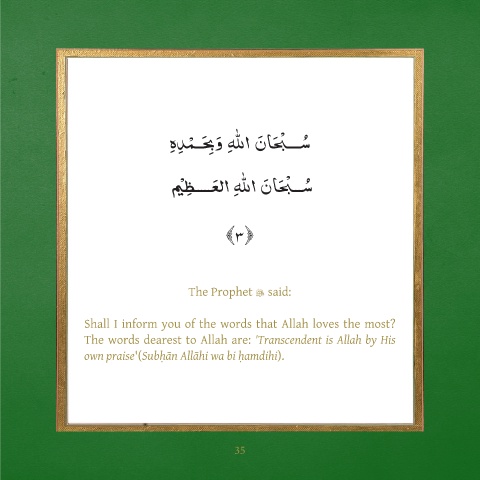 سُبْحَانَ اللهِ وَبِحَمْدِهِ
سُبْحَانَ اللهِ العَظِيْم
﴿٣﴾
The Prophet ﷺ said:
Shall I inform you of the words that Allah loves the most?
The words dearest to Allah are: 'Transcendent is Allah by His
own praise'(Subḥān Allāhi wa bi ḥamdihi).
35